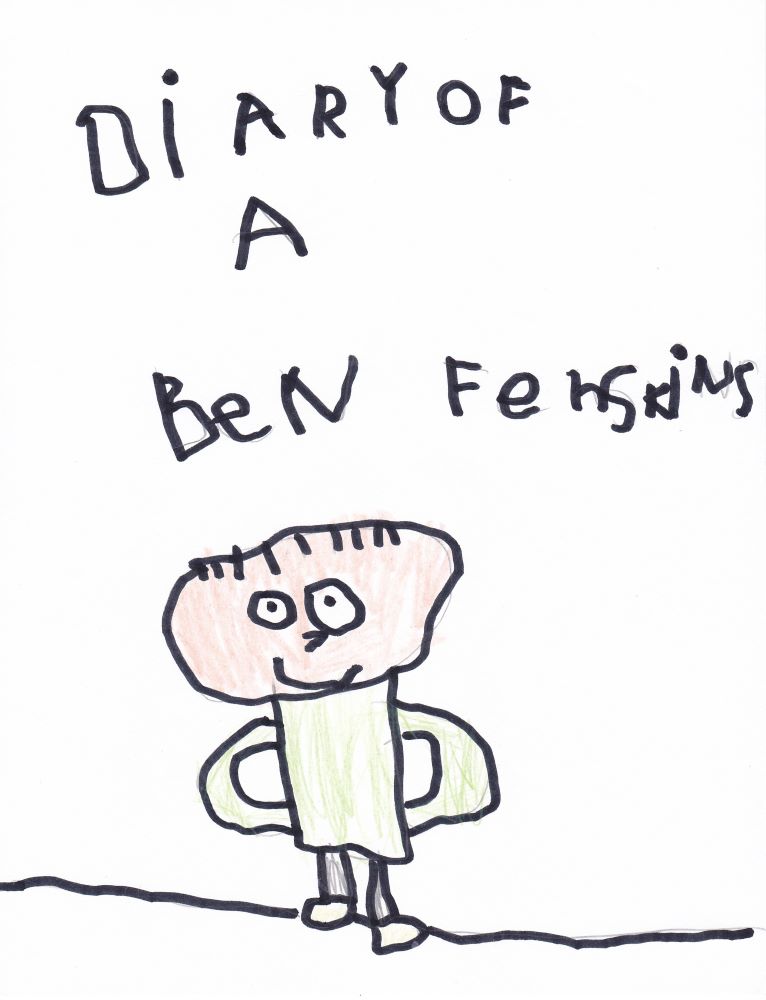 DiARY OF
A
BeN FeNSKiNS